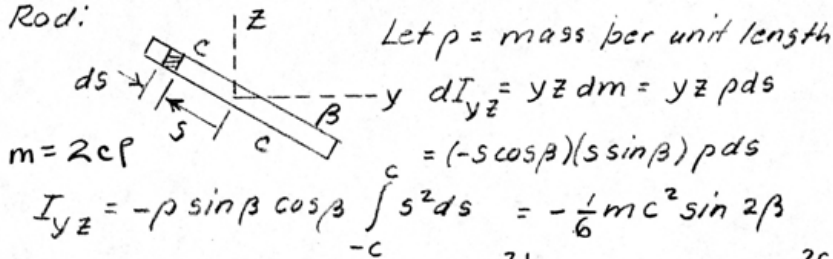 Rod: z Let ρ = mass per unit length
c
ds y dI_yz = yz dm = yz ρds
β
s c
m = 2cρ = (-s cosβ)(s sinβ) ρds
I_yz = -ρ sinβ cosβ ∫_{-c}^{c} s²ds = -1/6 mc² sin 2β